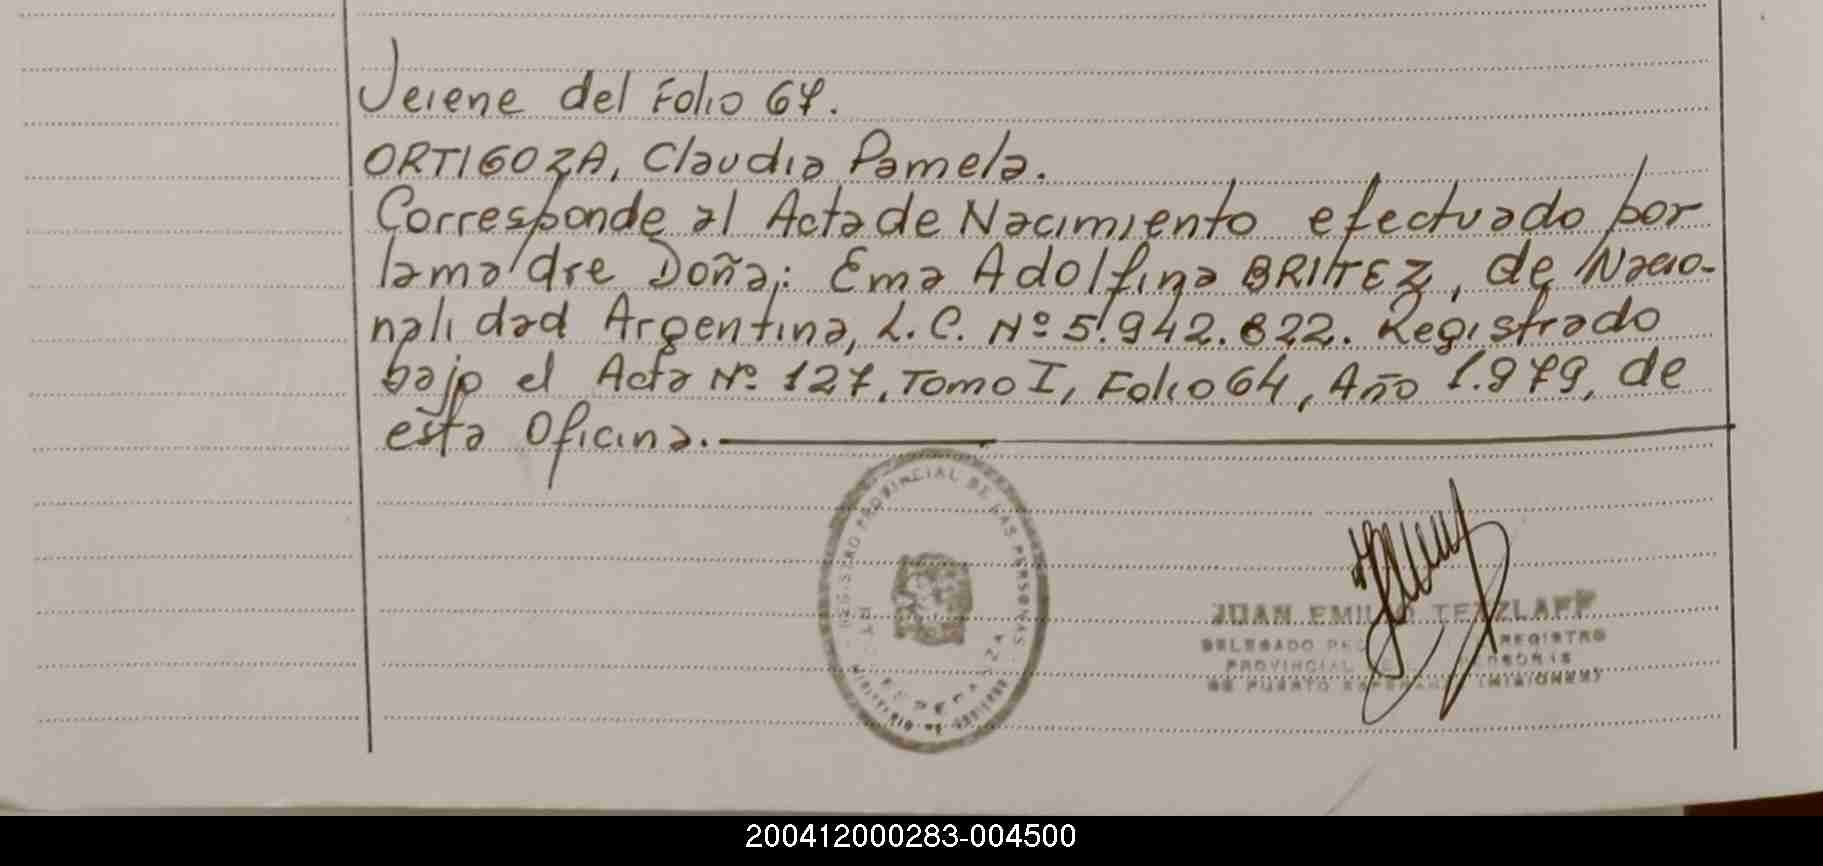 Veiene del Folio 67.
ORTIGOZA, Claudia Pamela.
Corresponde al Acta de Nacimiento efectuado por
la madre Doña: Ema Adolfina BRITEZ, de Nacio-
nalidad Argentina, L.C. Nº 5.942.622. Registrado
bajo el Acta Nº 127, Tomo I, Folio 64, Año 1.979, de
esta Oficina.
REGISTRO PROVINCIAL DE LAS PERSONAS
MINISTERIO DE GOBIERNO
JUAN EMILIO TETZLAFF
DELEGADO REGISTRO
PROVINCIAL DE PERSONAS
DE PUERTO ESPERANZA (MISIONES)
200412000283-004500